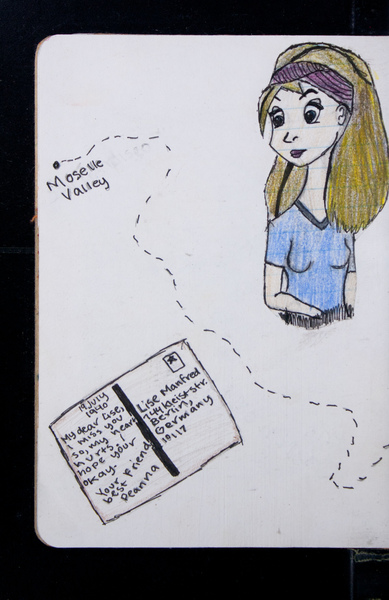 Moselle
Valley
19 July
1940
My dear Lise,
I miss you
so, my heart
hurts, I
hope your
okay.
Your
best friend
Deanna
Lise Manfred
744 kleiststr.
Berlin,
Germany
10117